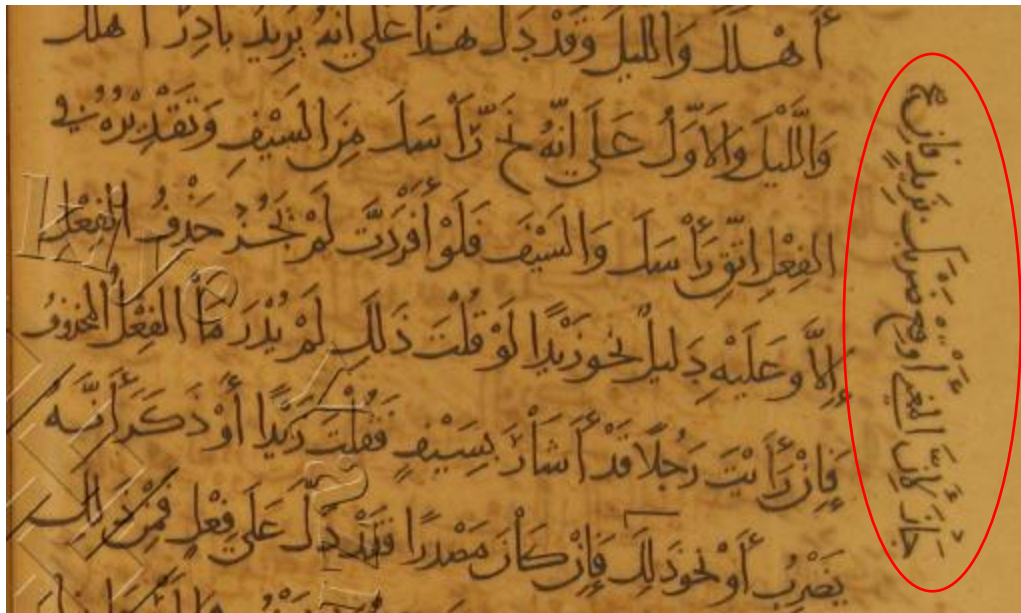 أهلك والليل وقد دل هذا على أنه يريد بادر أهلك
والليل والأول على أنه نح رأسك من السيف وتقديره في
الفعل اتق رأسك والسيف فلو أفردت لم يجز حذف الفعل
إلا وعليه دليل نحو زيدا لو قلت ذلك لم يدر ما الفعل المحذوف
فإن رأيت رجلا قد أشار بسيف فقلت زيدا أو ذكر أنه
يضرب أو نحو ذلك فإن كان مصدرا فقد دل على فعله فمن ذلك
جاز لأن المعنى أوقع ضربك بزيد